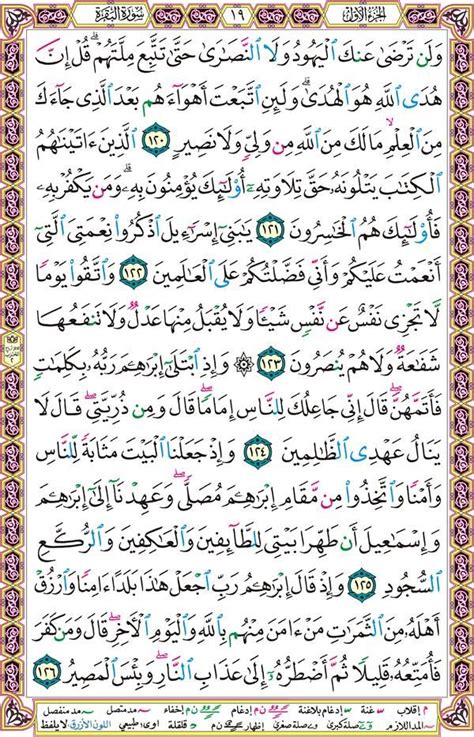 الجزء الأول ١٩ سورة البقرة
وَلَن تَرْضَىٰ عَنكَ ٱلْيَهُودُ وَلَا ٱلنَّصَـٰرَىٰ حَتَّىٰ تَتَّبِعَ مِلَّتَهُمْ ۗ قُلْ إِنَّ
هُدَى ٱللَّهِ هُوَ ٱلْهُدَىٰ ۗ وَلَئِنِ ٱتَّبَعْتَ أَهْوَآءَهُم بَعْدَ ٱلَّذِى جَآءَكَ
مِنَ ٱلْعِلْمِ ۙ مَا لَكَ مِنَ ٱللَّهِ مِن وَلِىٍّ وَلَا نَصِيرٍ ١٢٠ ٱلَّذِينَ ءَاتَيْنَـٰهُمُ
ٱلْكِتَـٰبَ يَتْلُونَهُۥ حَقَّ تِلَاوَتِهِۦٓ أُو۟لَـٰٓئِكَ يُؤْمِنُونَ بِهِۦ ۗ وَمَن يَكْفُرْ بِهِۦ
فَأُو۟لَـٰٓئِكَ هُمُ ٱلْخَـٰسِرُونَ ١٢١ يَـٰبَنِىٓ إِسْرَٰٓءِيلَ ٱذْكُرُوا۟ نِعْمَتِىَ ٱلَّتِىٓ
أَنْعَمْتُ عَلَيْكُمْ وَأَنِّى فَضَّلْتُكُمْ عَلَى ٱلْعَـٰلَمِينَ ١٢٢ وَٱتَّقُوا۟ يَوْمًا
لَّا تَجْزِى نَفْسٌ عَن نَّفْسٍ شَيْـًٔا وَلَا يُقْبَلُ مِنْهَا عَدْلٌ وَلَا تَنفَعُهَا
شَفَـٰعَةٌ وَلَا هُمْ يُنصَرُونَ ١٢٣ ۞ وَإِذِ ٱبْتَلَىٰٓ إِبْرَٰهِـۧمَ رَبُّهُۥ بِكَلِمَـٰتٍ
فَأَتَمَّهُنَّ ۖ قَالَ إِنِّى جَاعِلُكَ لِلنَّاسِ إِمَامًا ۖ قَالَ وَمِن ذُرِّيَّتِى ۖ قَالَ لَا
يَنَالُ عَهْدِى ٱلظَّـٰلِمِينَ ١٢٤ وَإِذْ جَعَلْنَا ٱلْبَيْتَ مَثَابَةً لِّلنَّاسِ
وَأَمْنًا وَٱتَّخِذُوا۟ مِن مَّقَامِ إِبْرَٰهِـۧمَ مُصَلًّى ۖ وَعَهِدْنَآ إِلَىٰٓ إِبْرَٰهِـۧمَ
وَإِسْمَـٰعِيلَ أَن طَهِّرَا بَيْتِىَ لِلطَّآئِفِينَ وَٱلْعَـٰكِفِينَ وَٱلرُّكَّعِ
ٱلسُّجُودِ ١٢٥ وَإِذْ قَالَ إِبْرَٰهِـۧمُ رَبِّ ٱجْعَلْ هَـٰذَا بَلَدًا ءَامِنًا وَٱرْزُقْ
أَهْلَهُۥ مِنَ ٱلثَّمَرَٰتِ مَنْ ءَامَنَ مِنْهُم بِٱللَّهِ وَٱلْيَوْمِ ٱلْـَٔاخِرِ ۖ قَالَ وَمَن كَفَرَ
فَأُمَتِّعُهُۥ قَلِيلًا ثُمَّ أَضْطَرُّهُۥٓ إِلَىٰ عَذَابِ ٱلنَّارِ ۖ وَبِئْسَ ٱلْمَصِيرُ ١٢٦
م إقلاب غنة إدغام بلاغنة ن م إدغام ن م إخفاء مد متصل مد منفصل
المد اللازم صلة كبرى صلة صغرى إظهار ن م قلقلة اوى: طبيعي اللون الأزرق لا يلفظ